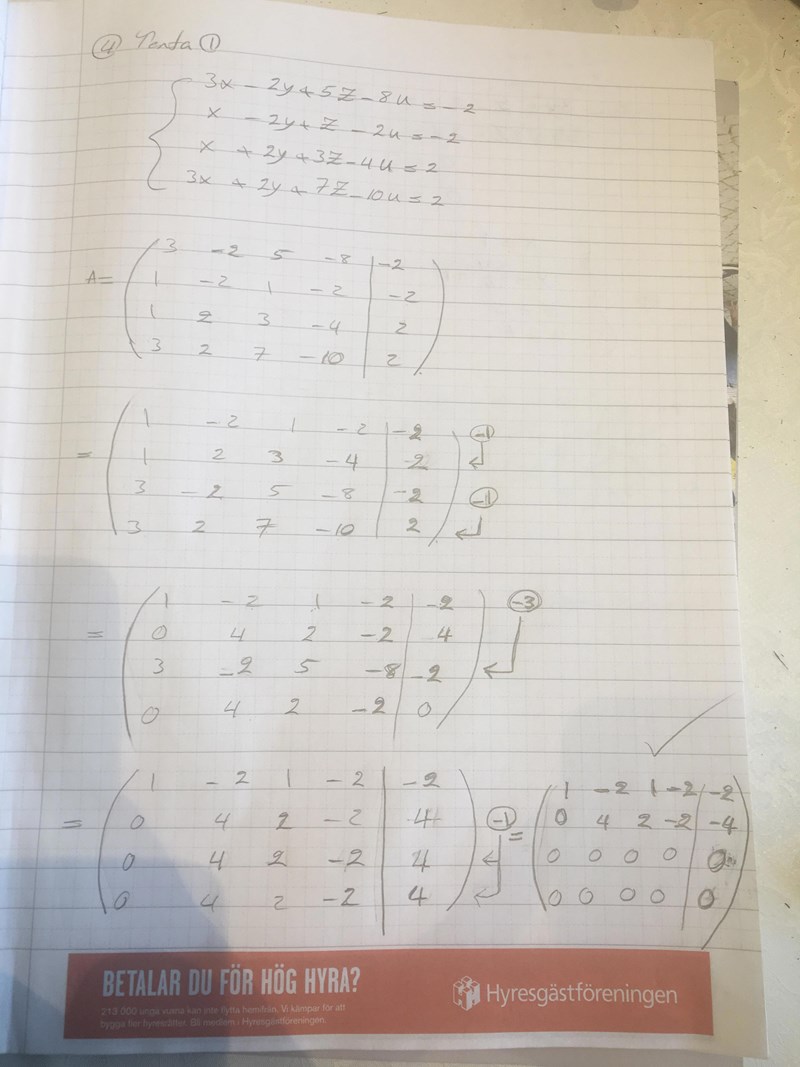 ④ Tenta ①
3x - 2y + 5z - 8u = -2
x - 2y + z - 2u = -2
x + 2y + 3z - 4u = 2
3x + 2y + 7z - 10u = 2
A = ( 3 -2 5 -8 | -2
1 -2 1 -2 | -2
1 2 3 -4 | 2
3 2 7 -10 | 2 )
= ( 1 -2 1 -2 | -2 -1
1 2 3 -4 | -2
3 -2 5 -8 | -2 -1
3 2 7 -10 | 2 )
= ( 1 -2 1 -2 | -2 -3
0 4 2 -2 | 4
3 -2 5 -8 | -2
0 4 2 -2 | 0 )
= ( 1 -2 1 -2 | -2
0 4 2 -2 | 4 -1
0 4 2 -2 | 4
0 4 2 -2 | 4 )
= ( 1 -2 1 -2 | -2
0 4 2 -2 | -4
0 0 0 0 | 0
0 0 0 0 | 0 )
BETALAR DU FÖR HÖG HYRA?
213 000 unga vuxna kan inte flytta hemifrån. Vi kämpar för att
bygga fler hyresrätter. Bli medlem i Hyresgästföreningen.
Hyresgästföreningen